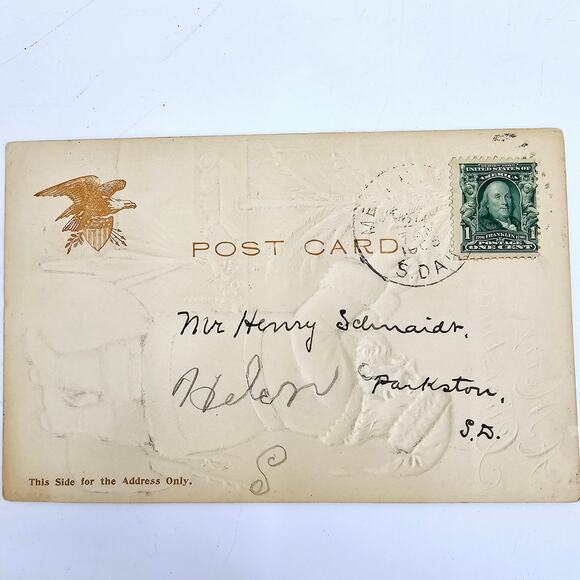 SERIES 1902
UNITED STATES OF
AMERICA
1 1
FRANKLIN
POSTAGE
ONE CENT
POST CARD
S.DAK
Mr Henry Schmidt,
Helen Parkston,
S.D.
S
This Side for the Address Only.